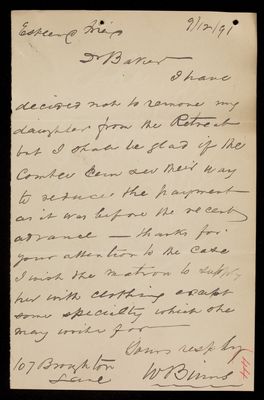 Esteemd Frie[n]d 9/12/91
Dr Baker
I have
decided not to remove my
daughter from the Retreat
but I shall be glad if the
Comtee can see their way
to reduce the payment
as it was before the recent
advance — thanks for
your attention to the case
I wish the matron to supply
her with clothing except
some specialty which she
may write for
Yours respfly
107 Broughton W Binns
Lane